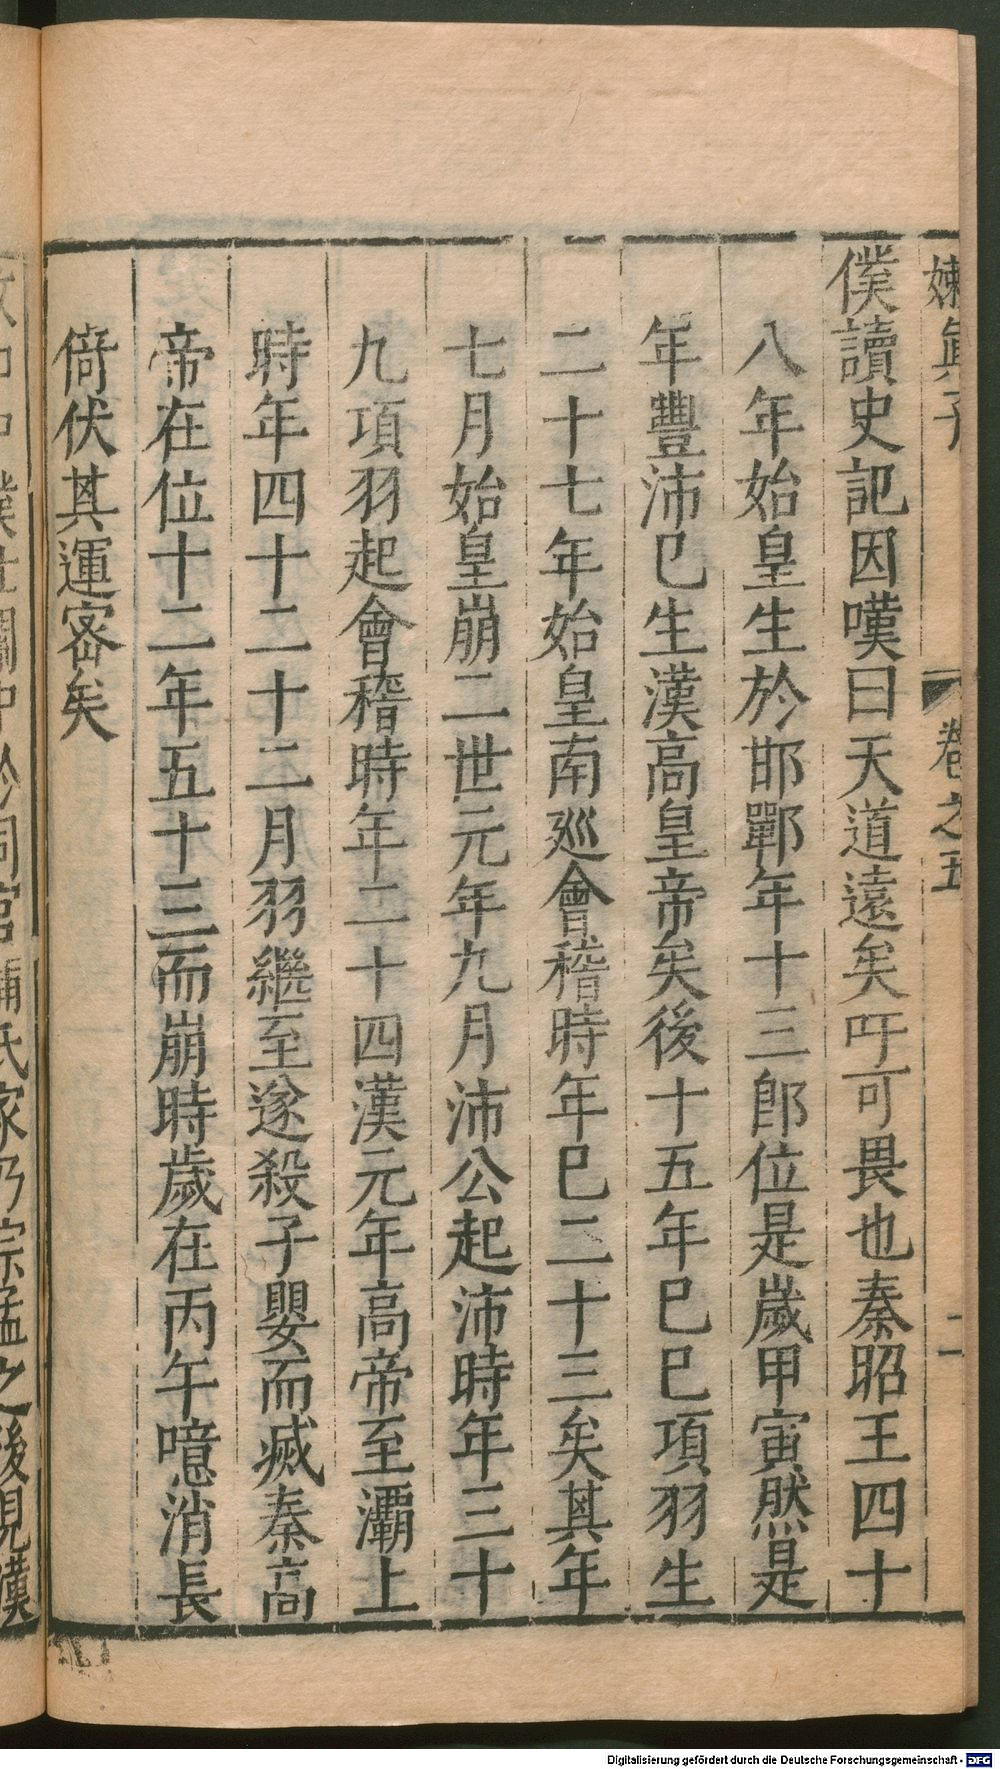 嬾眞子 卷之五 二
僕讀史記因嘆曰天道遠矣吁可畏也秦昭王四十
八年始皇生於邯鄲年十三卽位是歲甲寅然是
年豐沛已生漢高皇帝矣後十五年己巳項羽生
二十七年始皇南巡會稽時年已二十三矣其年
七月始皇崩二世元年九月沛公起沛時年三十
九項羽起會稽時年二十四漢元年高帝至灞上
時年四十二十二月羽繼至遂殺子嬰而滅秦高
帝在位十二年五十三而崩時歲在丙午噫消長
倚伏其運密矣
後見漢
Digitalisierung gefördert durch die Deutsche Forschungsgemeinschaft - DFG